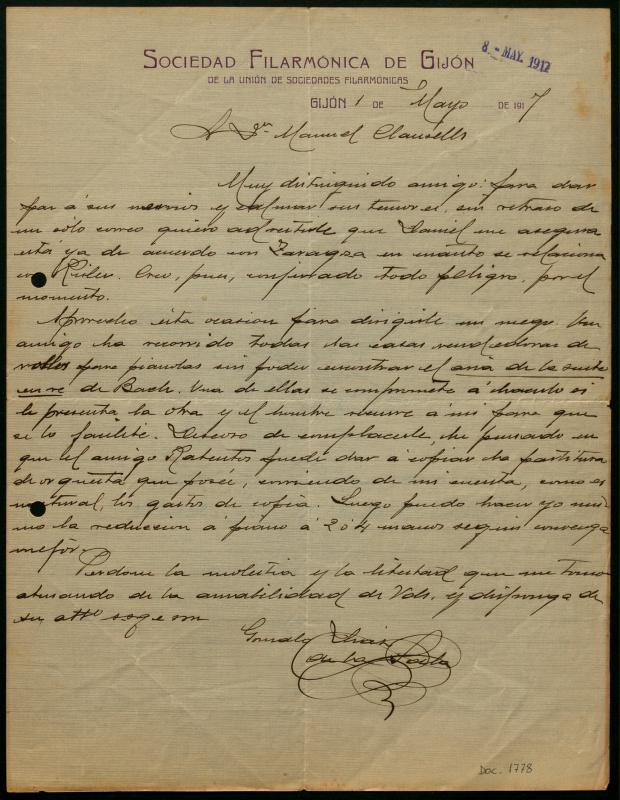 SOCIEDAD FILARMÓNICA DE GIJÓN
8 - MAY. 1917
DE LA UNIÓN DE SOCIEDADES FILARMÓNICAS
GIJÓN 1 DE Mayo DE 1917
A Dn Manuel Clausells
Muy distinguido amigo: para dar
paz á sus nervios y calmar sus temores, sin retraso de
un sólo correo quiero advertirle que Daniel me asegura
está ya de acuerdo con Zaragoza en cuanto se relaciona
con Risler. Creo, pues, conjurado todo peligro, por el
momento.
Aprovecho esta ocasion para dirigirle un ruego. Un
amigo ha recorrido todas las casas vendedoras de
rollos para pianolas sin poder encontrar el aria de la suite
en re de Bach. Una de ellas se compromete á hacerlo si
le presenta la obra y el hombre recurre a mi para que
se lo facilite. Deseoso de complacerle, he pensado en
que el amigo puede dar á copiar la partitura
de orquesta que posee, corriendo de mi cuenta, como es
natural, los gastos de copia. Luego puedo hacer yo mis-
mo la reduccion á piano á 2 ó 4 manos segun convenga
mejor.
Perdone la molestia y la libertad que me tomo
abusando de la amabilidad de Vds. y disponga de
su atto s.s.q.e.s.m
Gonzalo
de la
Doc. 1778